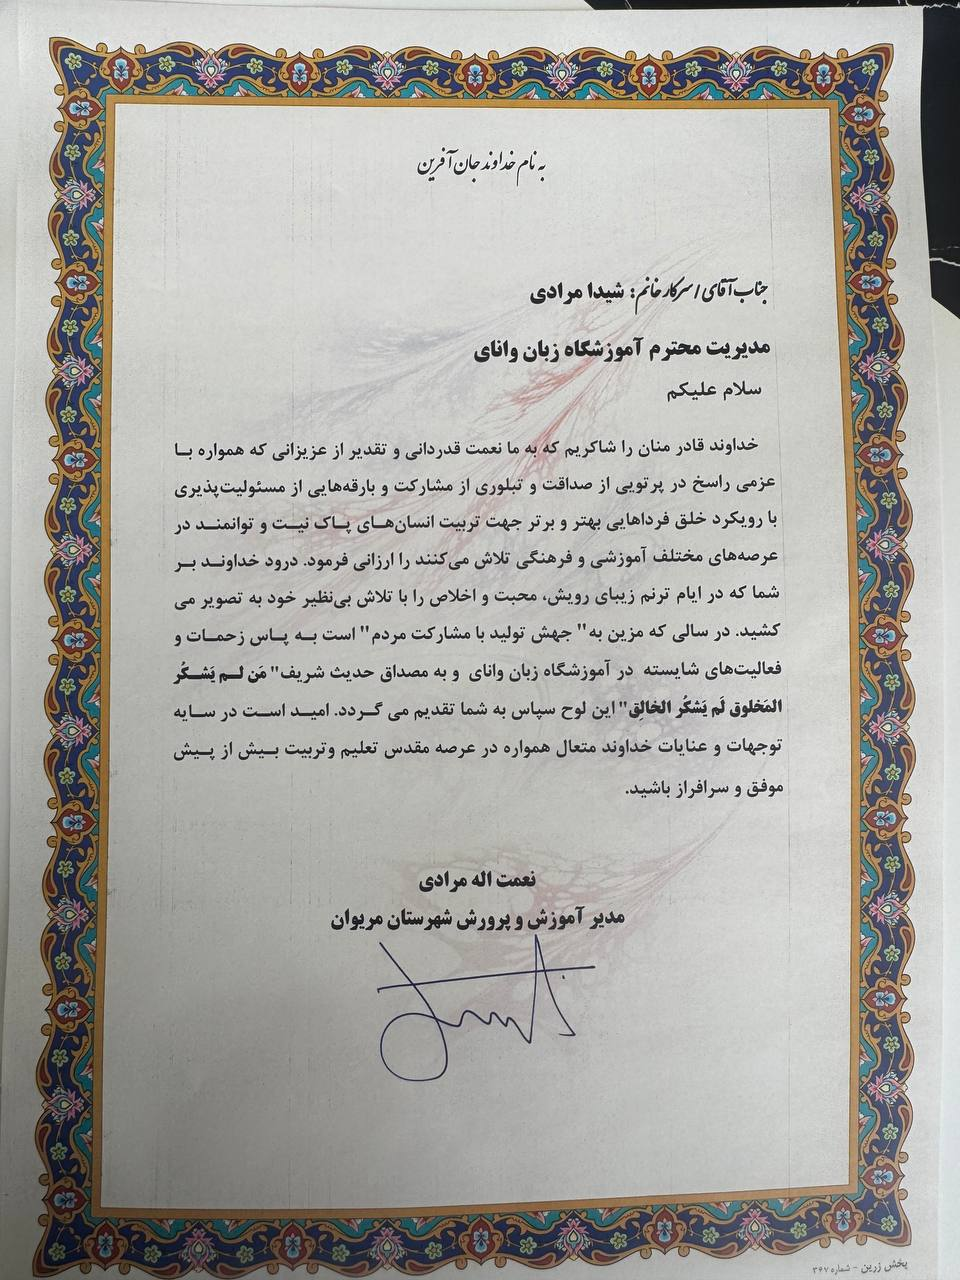 به نام خداوند جان آفرین
جناب آقای / سرکار خانم: شیدا مرادی
مدیریت محترم آموزشگاه زبان وانای
سلام علیکم
خداوند قادر منان را شاکریم که به ما نعمت قدردانی و تقدیر از عزیزانی که همواره بـا
عزمی راسخ در پرتویی از صداقت و تبلوری از مشارکت و بارقه‌هایی از مسئولیت‌پذیری
با رویکرد خلق فرداهایی بهتر و برتر جهت تربیت انسان‌های پـاک نیـت و توانمند در
عرصه‌های مختلف آموزشی و فرهنگی تلاش می‌کنند را ارزانی فرمود. درود خداونـد بـر
شما که در ایام ترنم زیبای رویش، محبت و اخلاص را با تلاش بی‌نظیر خود به تصویر می
کشید. در سالی که مزین به" جهش تولید با مشارکت مردم" است بـه پـاس زحمـات و
فعالیت‌های شایسته در آموزشگاه زبان وانای و به مصداق حدیث شریف" مَن لـم یَشـکُر
المَخلوق لَم یَشکُر الخالِق" این لوح سپاس به شما تقدیم می گـردد. امیـد اسـت در سـایه
توجهات و عنایات خداوند متعال همواره در عرصه مقدس تعلیم وتربیت بـیش از پـیش
موفق و سرافراز باشید.
نعمت اله مرادی
مدیر آموزش و پرورش شهرستان مریوان
پخش زرین - شماره ۳۶۷